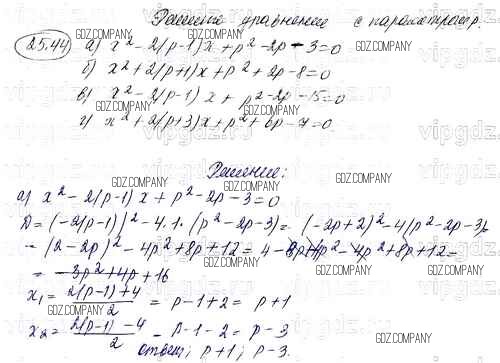 Решение уравнения с параметром.
25.44 а) x² - 2(p-1)x + p² - 2p - 3 = 0
б) x² + 2(p+1)x + p² + 2p - 8 = 0
в) x² - 2(p-1)x + p² - 2p - 15 = 0
г) x² + 2(p+3)x + p² + 6p - 7 = 0
Решение:
а) x² - 2(p-1)x + p² - 2p - 3 = 0
D = (-2(p-1))² - 4·1·(p² - 2p - 3) = (-2p+2)² - 4(p² - 2p - 3) =
= (2 - 2p)² - 4p² + 8p + 12 = 4 - 8p + 4p² - 4p² + 8p + 12 =
= - 3p² + 4p + 16
x₁ = 2(p-1)+4 / 2 = p - 1 + 2 = p + 1
x₂ = 2(p-1) - 4 / 2 = p - 1 - 2 = p - 3
ответ: p+1; p-3.
GDZ.COMPANY
vipgdz.ru